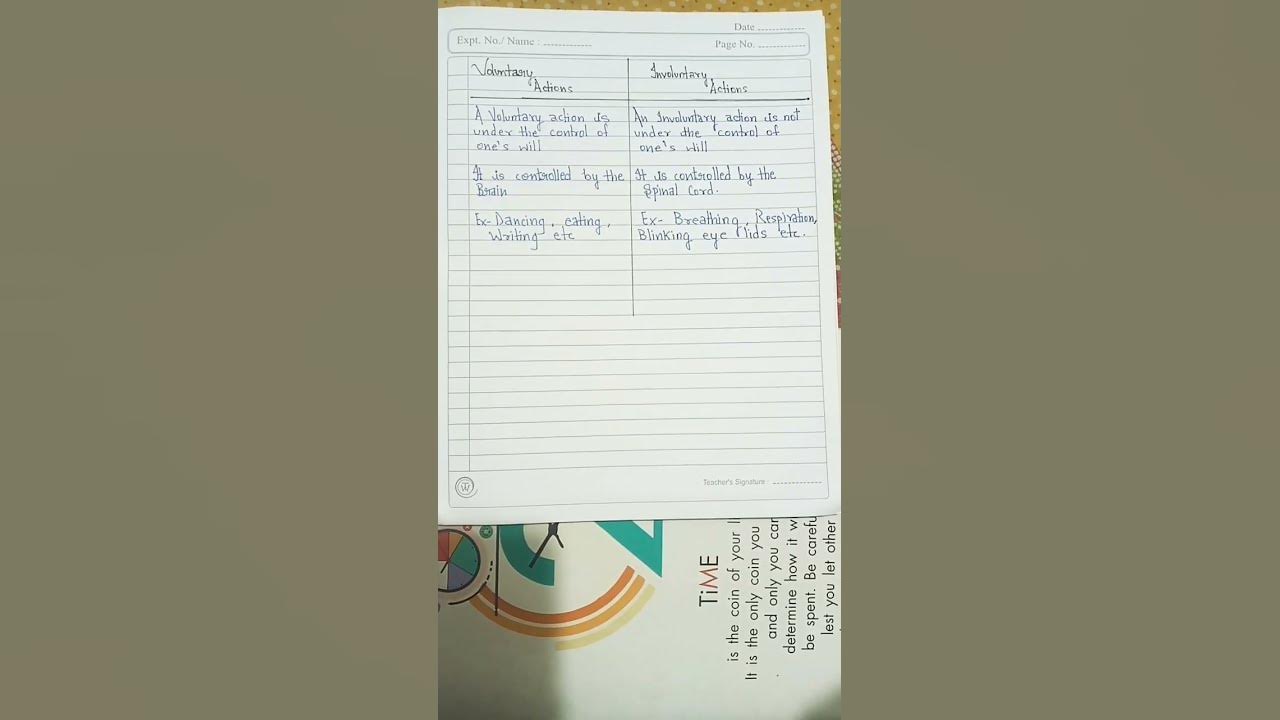 Date
Expt. No./ Name :
Page No.
Voluntary
Actions
Involuntary
Actions
A Voluntary action is
under the control of
one's will
An Involuntary action is not
under the control of
one's will
It is controlled by the
Brain
It is controlled by the
Spinal Cord.
Ex- Dancing, eating,
Writing etc
Ex- Breathing, Respiration,
Blinking eye lids etc.
Teacher's Signature
TiME
is the coin of your
It is the only coin you
and only you can
determine how it
be spent. Be
lest you let other